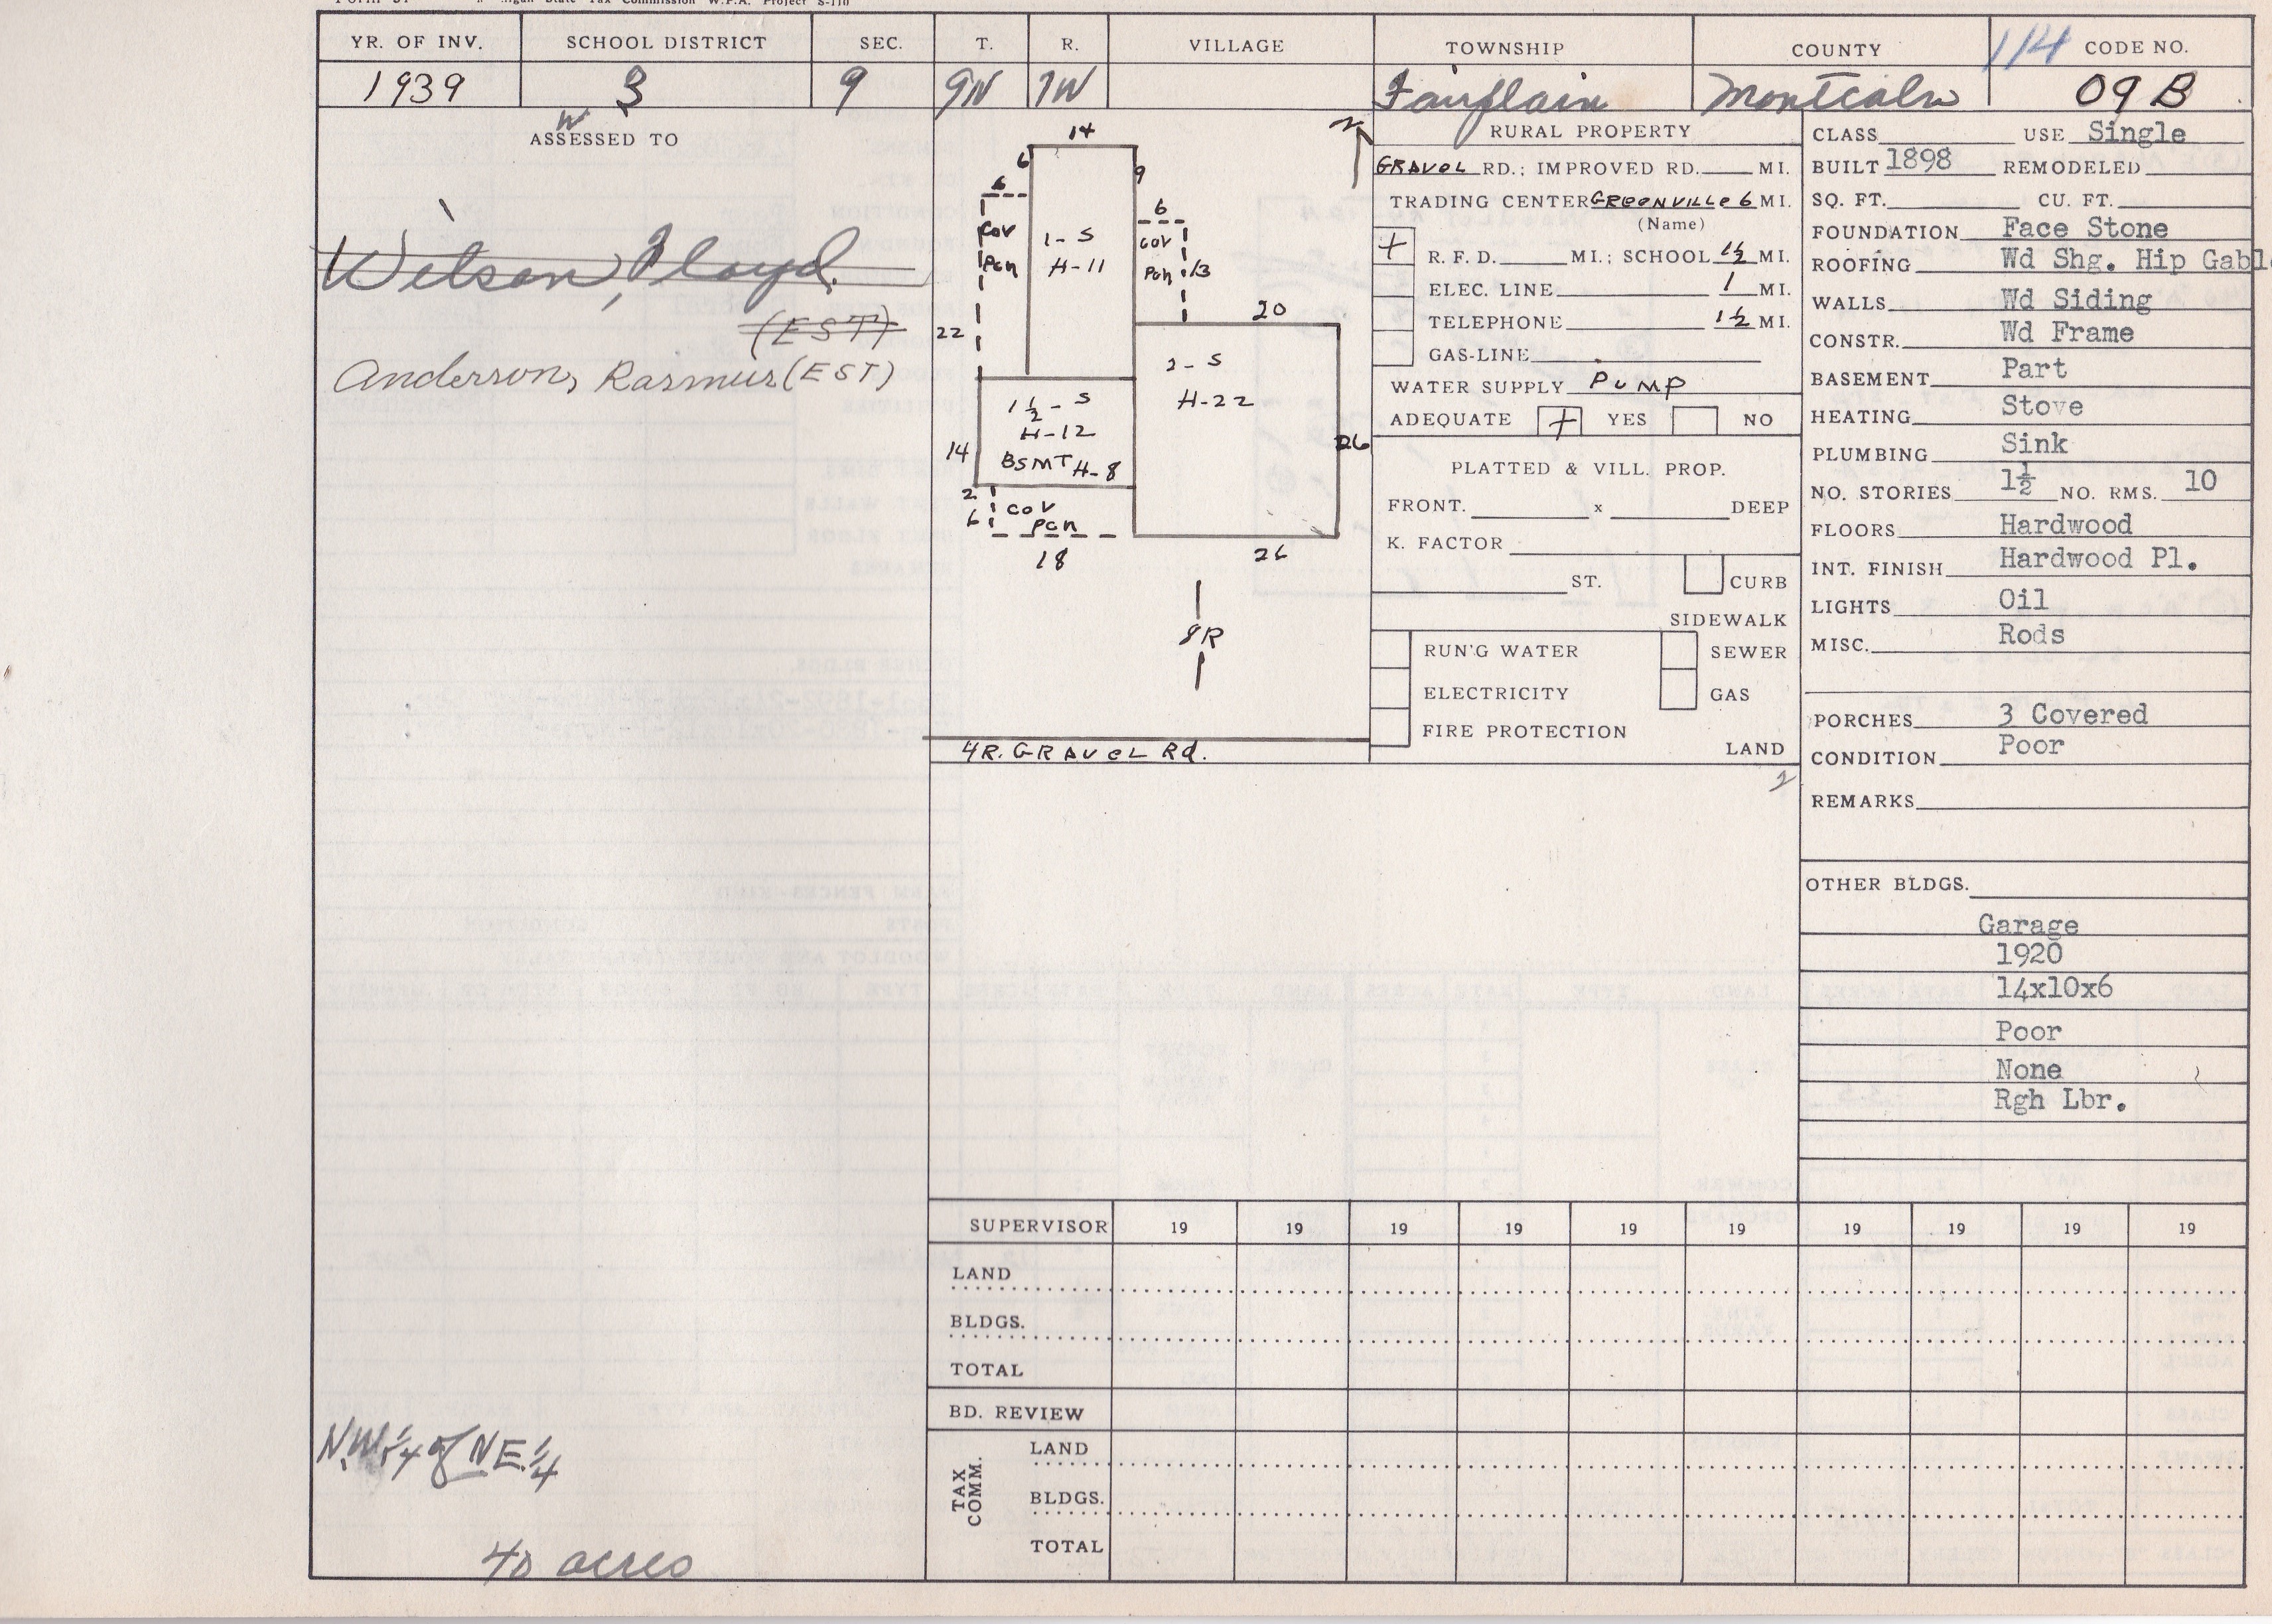 State Tax Commission W.P.A. Project S-110
YR. OF INV. SCHOOL DISTRICT SEC. T. R. VILLAGE TOWNSHIP COUNTY 114 CODE NO.
1939 3 9 9N 7W Fairplain Montcalm 09B
W
ASSESSED TO
Wilson, Floyd
(EST)
Anderson, Rasmus (EST)
N.W.1/4 of NE.1/4
40 acres
N
14
6
9
6
COV
PCH
1-S
H-11
6
COV
PCH
13
22
20
2-S
H-22
26
1 1/2-S
H-12
BSMT H-8
14
2
6
COV
PCH
18
26
8R
4R. GRAVEL Rd.
RURAL PROPERTY
GRAVEL RD.; IMPROVED RD. MI.
TRADING CENTER GREENVILLE 6 MI.
(Name)
+ R. F. D. MI.; SCHOOL 1½ MI.
ELEC. LINE 1 MI.
TELEPHONE 1½ MI.
GAS-LINE
WATER SUPPLY PUMP
ADEQUATE + YES NO
PLATTED & VILL. PROP.
FRONT. x DEEP
K. FACTOR
ST. CURB
SIDEWALK
RUN'G WATER SEWER
ELECTRICITY GAS
FIRE PROTECTION
LAND
CLASS USE Single
BUILT 1898 REMODELED
SQ. FT. CU. FT.
FOUNDATION Face Stone
ROOFING Wd Shg. Hip Gable
WALLS Wd Siding
CONSTR. Wd Frame
BASEMENT Part
HEATING Stove
PLUMBING Sink
NO. STORIES 1½ NO. RMS. 10
FLOORS Hardwood
INT. FINISH Hardwood Pl.
LIGHTS Oil
MISC. Rods
PORCHES 3 Covered
CONDITION Poor
REMARKS
OTHER BLDGS.
Garage
1920
14x10x6
Poor
None
Rgh Lbr.
SUPERVISOR 19 19 19 19 19 19 19 19 19 19
LAND
BLDGS.
TOTAL
BD. REVIEW
TAX COMM.
LAND
BLDGS.
TOTAL